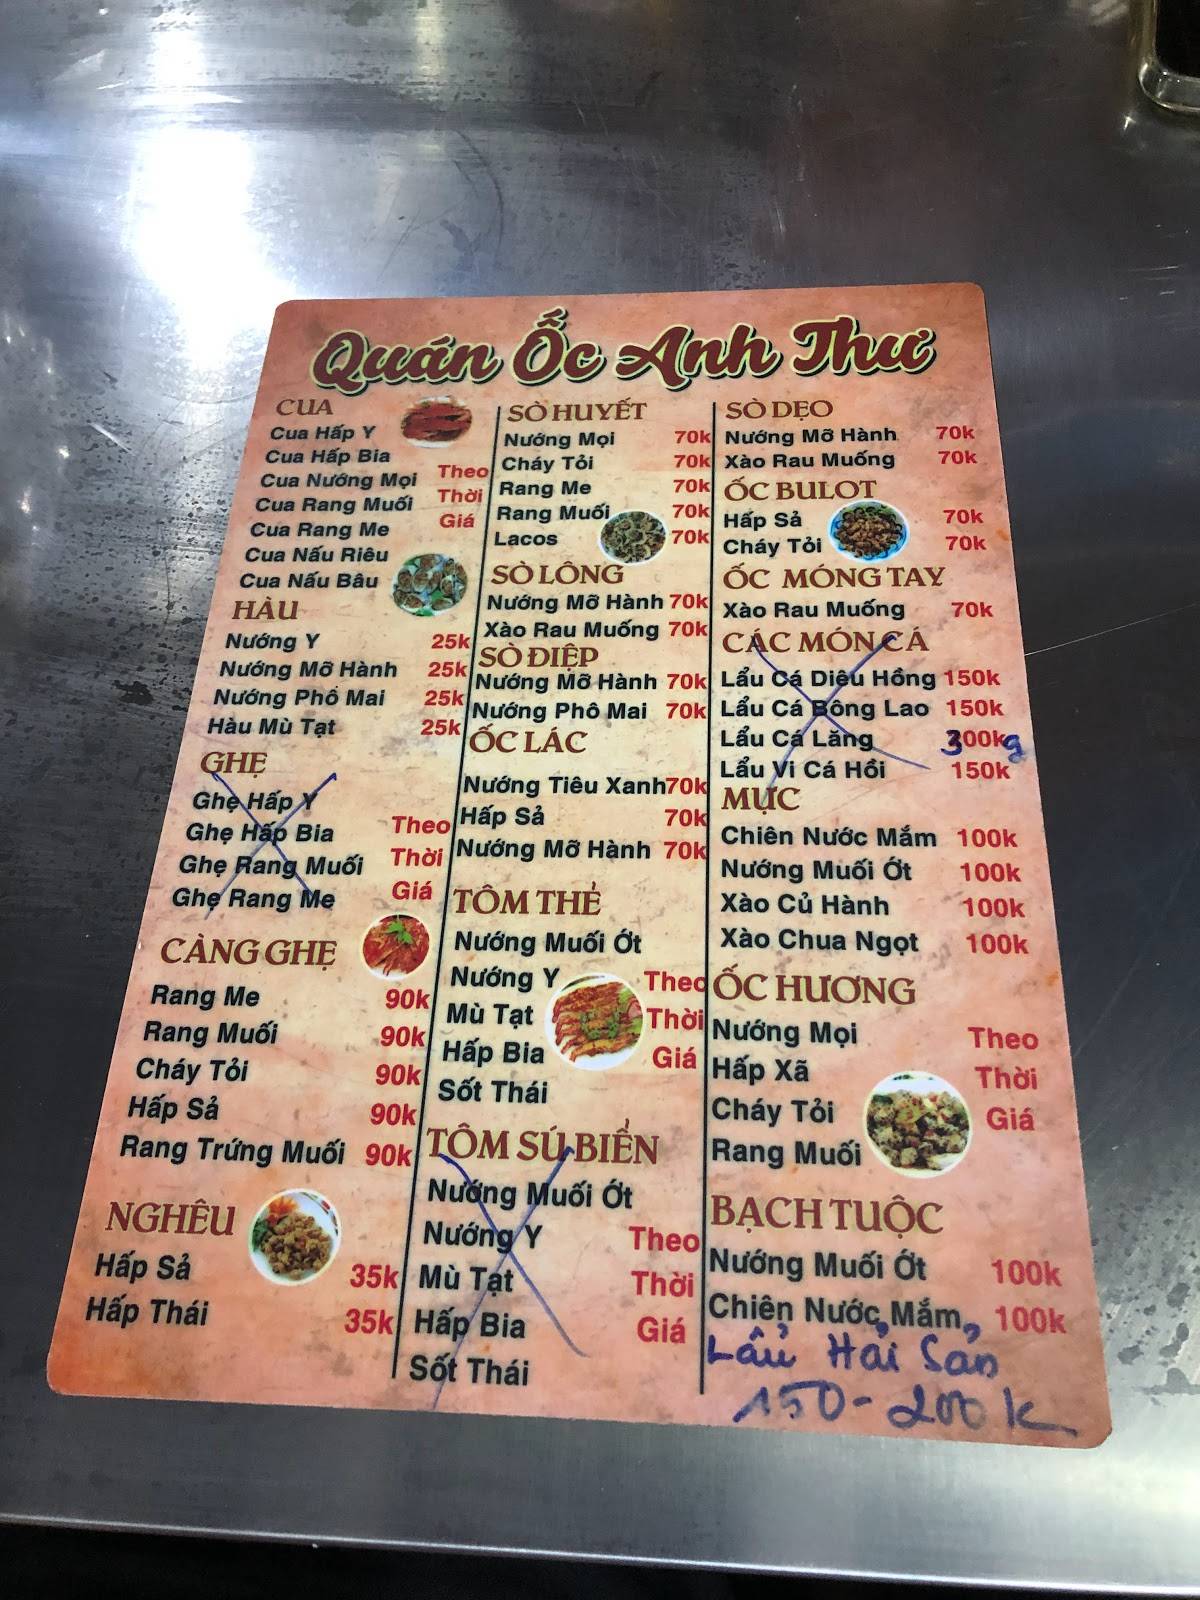 Quán Ốc Anh Thư
CUA
Cua Hấp Y
Cua Hấp Bia
Cua Nướng Mọi Theo
Cua Rang Muối Thời
Cua Rang Me Giá
Cua Nấu Riêu
Cua Nấu Bâu
HÀU
Nướng Y 25k
Nướng Mỡ Hành 25k
Nướng Phô Mai 25k
Hàu Mù Tạt 25k
GHẸ
Ghẹ Hấp Y
Ghẹ Hấp Bia Theo
Ghẹ Rang Muối Thời
Ghẹ Rang Me Giá
CÀNG GHẸ
Rang Me 90k
Rang Muối 90k
Cháy Tỏi 90k
Hấp Sả 90k
Rang Trứng Muối 90k
NGHÊU
Hấp Sả 35k
Hấp Thái 35k
SÒ HUYẾT
Nướng Mọi 70k
Cháy Tỏi 70k
Rang Me 70k
Rang Muối 70k
Lacos 70k
SÒ LÔNG
Nướng Mỡ Hành 70k
Xào Rau Muống 70k
SÒ ĐIỆP
Nướng Mỡ Hành 70k
Nướng Phô Mai 70k
ỐC LÁC
Nướng Tiêu Xanh 70k
Hấp Sả 70k
Nướng Mỡ Hành 70k
TÔM THẺ
Nướng Muối Ớt
Nướng Y Theo
Mù Tạt Thời
Hấp Bia Giá
Sốt Thái
TÔM SÚ BIỂN
Nướng Muối Ớt
Nướng Y Theo
Mù Tạt Thời
Hấp Bia Giá
Sốt Thái
SÒ DẸO
Nướng Mỡ Hành 70k
Xào Rau Muống 70k
ỐC BULOT
Hấp Sả 70k
Cháy Tỏi 70k
ỐC MÓNG TAY
Xào Rau Muống 70k
CÁC MÓN CÁ
Lẩu Cá Diêu Hồng 150k
Lẩu Cá Bông Lao 150k
Lẩu Cá Lăng 300k
Lẩu Vi Cá Hồi 150k
MỰC
Chiên Nước Mắm 100k
Nướng Muối Ớt 100k
Xào Củ Hành 100k
Xào Chua Ngọt 100k
ỐC HƯƠNG
Nướng Mọi Theo
Hấp Xã Thời
Cháy Tỏi Giá
Rang Muối
BẠCH TUỘC
Nướng Muối Ớt 100k
Chiên Nước Mắm 100k
Lẩu Hải Sản
150-200k